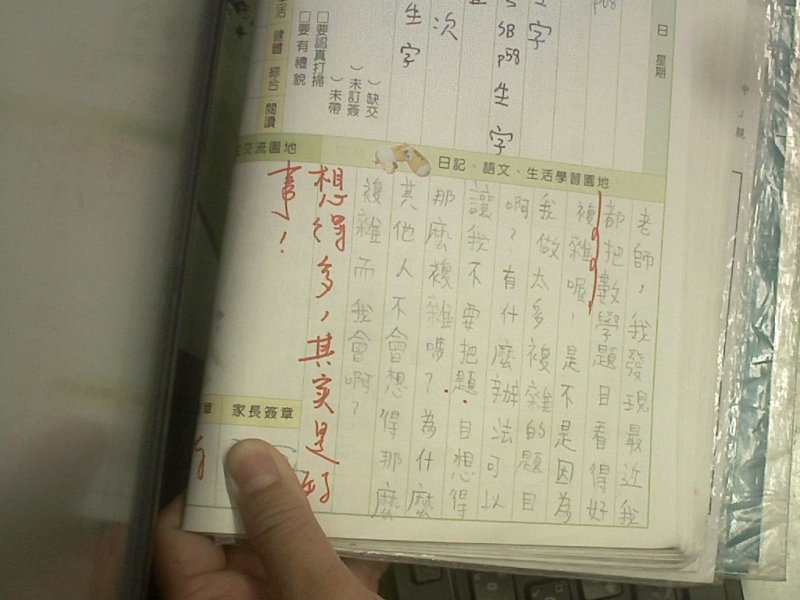 日 星期
生字
SB
p58
生字
次
生字
）缺交
）未訂簽
）未帶
□要認真打掃
□要有禮貌
活
健體
綜合
閱讀
日記、語文、生活學習園地
老師，我發現最近我
都把數學題目看得好
複雜喔！是不是因為
我做太多複雜的題目
啊？有什麼辦法可以
讓我不要把題目想得
那麼複雜嗎？為什麼
其他人不會想得那麼
複雜而我會啊？
交流園地
想得多，其實是好
事！
家長簽章
章